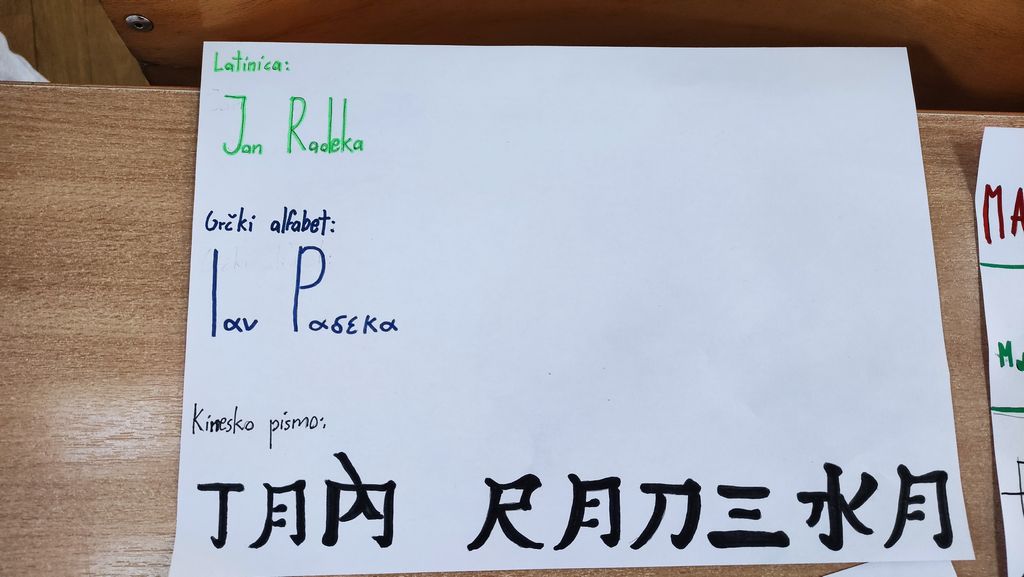 Latinica:
Jan Radeka
Grčki alfabet:
Ιαν Ραδεκα
Kinesko pismo:
丁月内 尺月刀三水月
MA
M